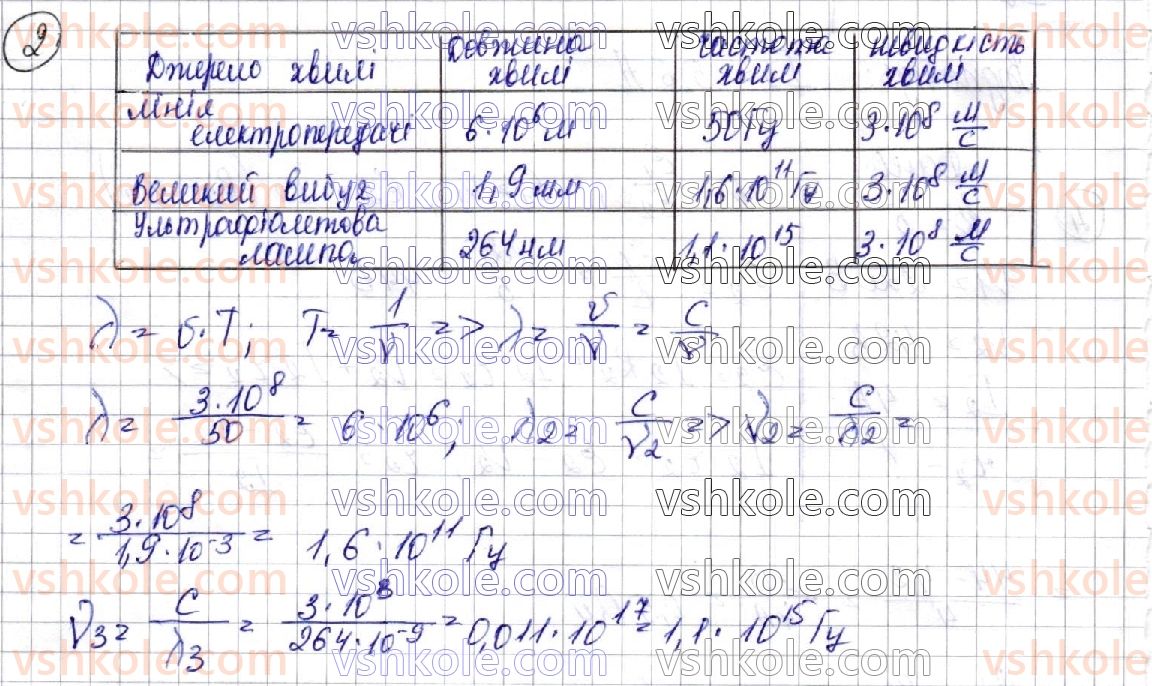 2
Джерело хвилі | Довжина хвилі | Частота хвилі | Швидкість хвилі
Лінія електропередачі | 6·10⁶ м | 50 Гц | 3·10⁸ м/с
Великий вибух | 1,9 мм | 1,6·10¹¹ Гц | 3·10⁸ м/с
Ультрафіолетова лампа | 264 нм | 1,1·10¹⁵ | 3·10⁸ м/с
λ = υ·T; T = 1/ν => λ = υ/ν = c/ν
λ = 3·10⁸/50 = 6·10⁶; λ₂ = c/ν₂ => ν₂ = c/λ₂ =
= 3·10⁸/1,9·10⁻³ = 1,6·10¹¹ Гц
ν₃ = c/λ₃ = 3·10⁸/264·10⁻⁹ = 0,011·10¹⁷ = 1,1·10¹⁵ Гц
vshkole.com